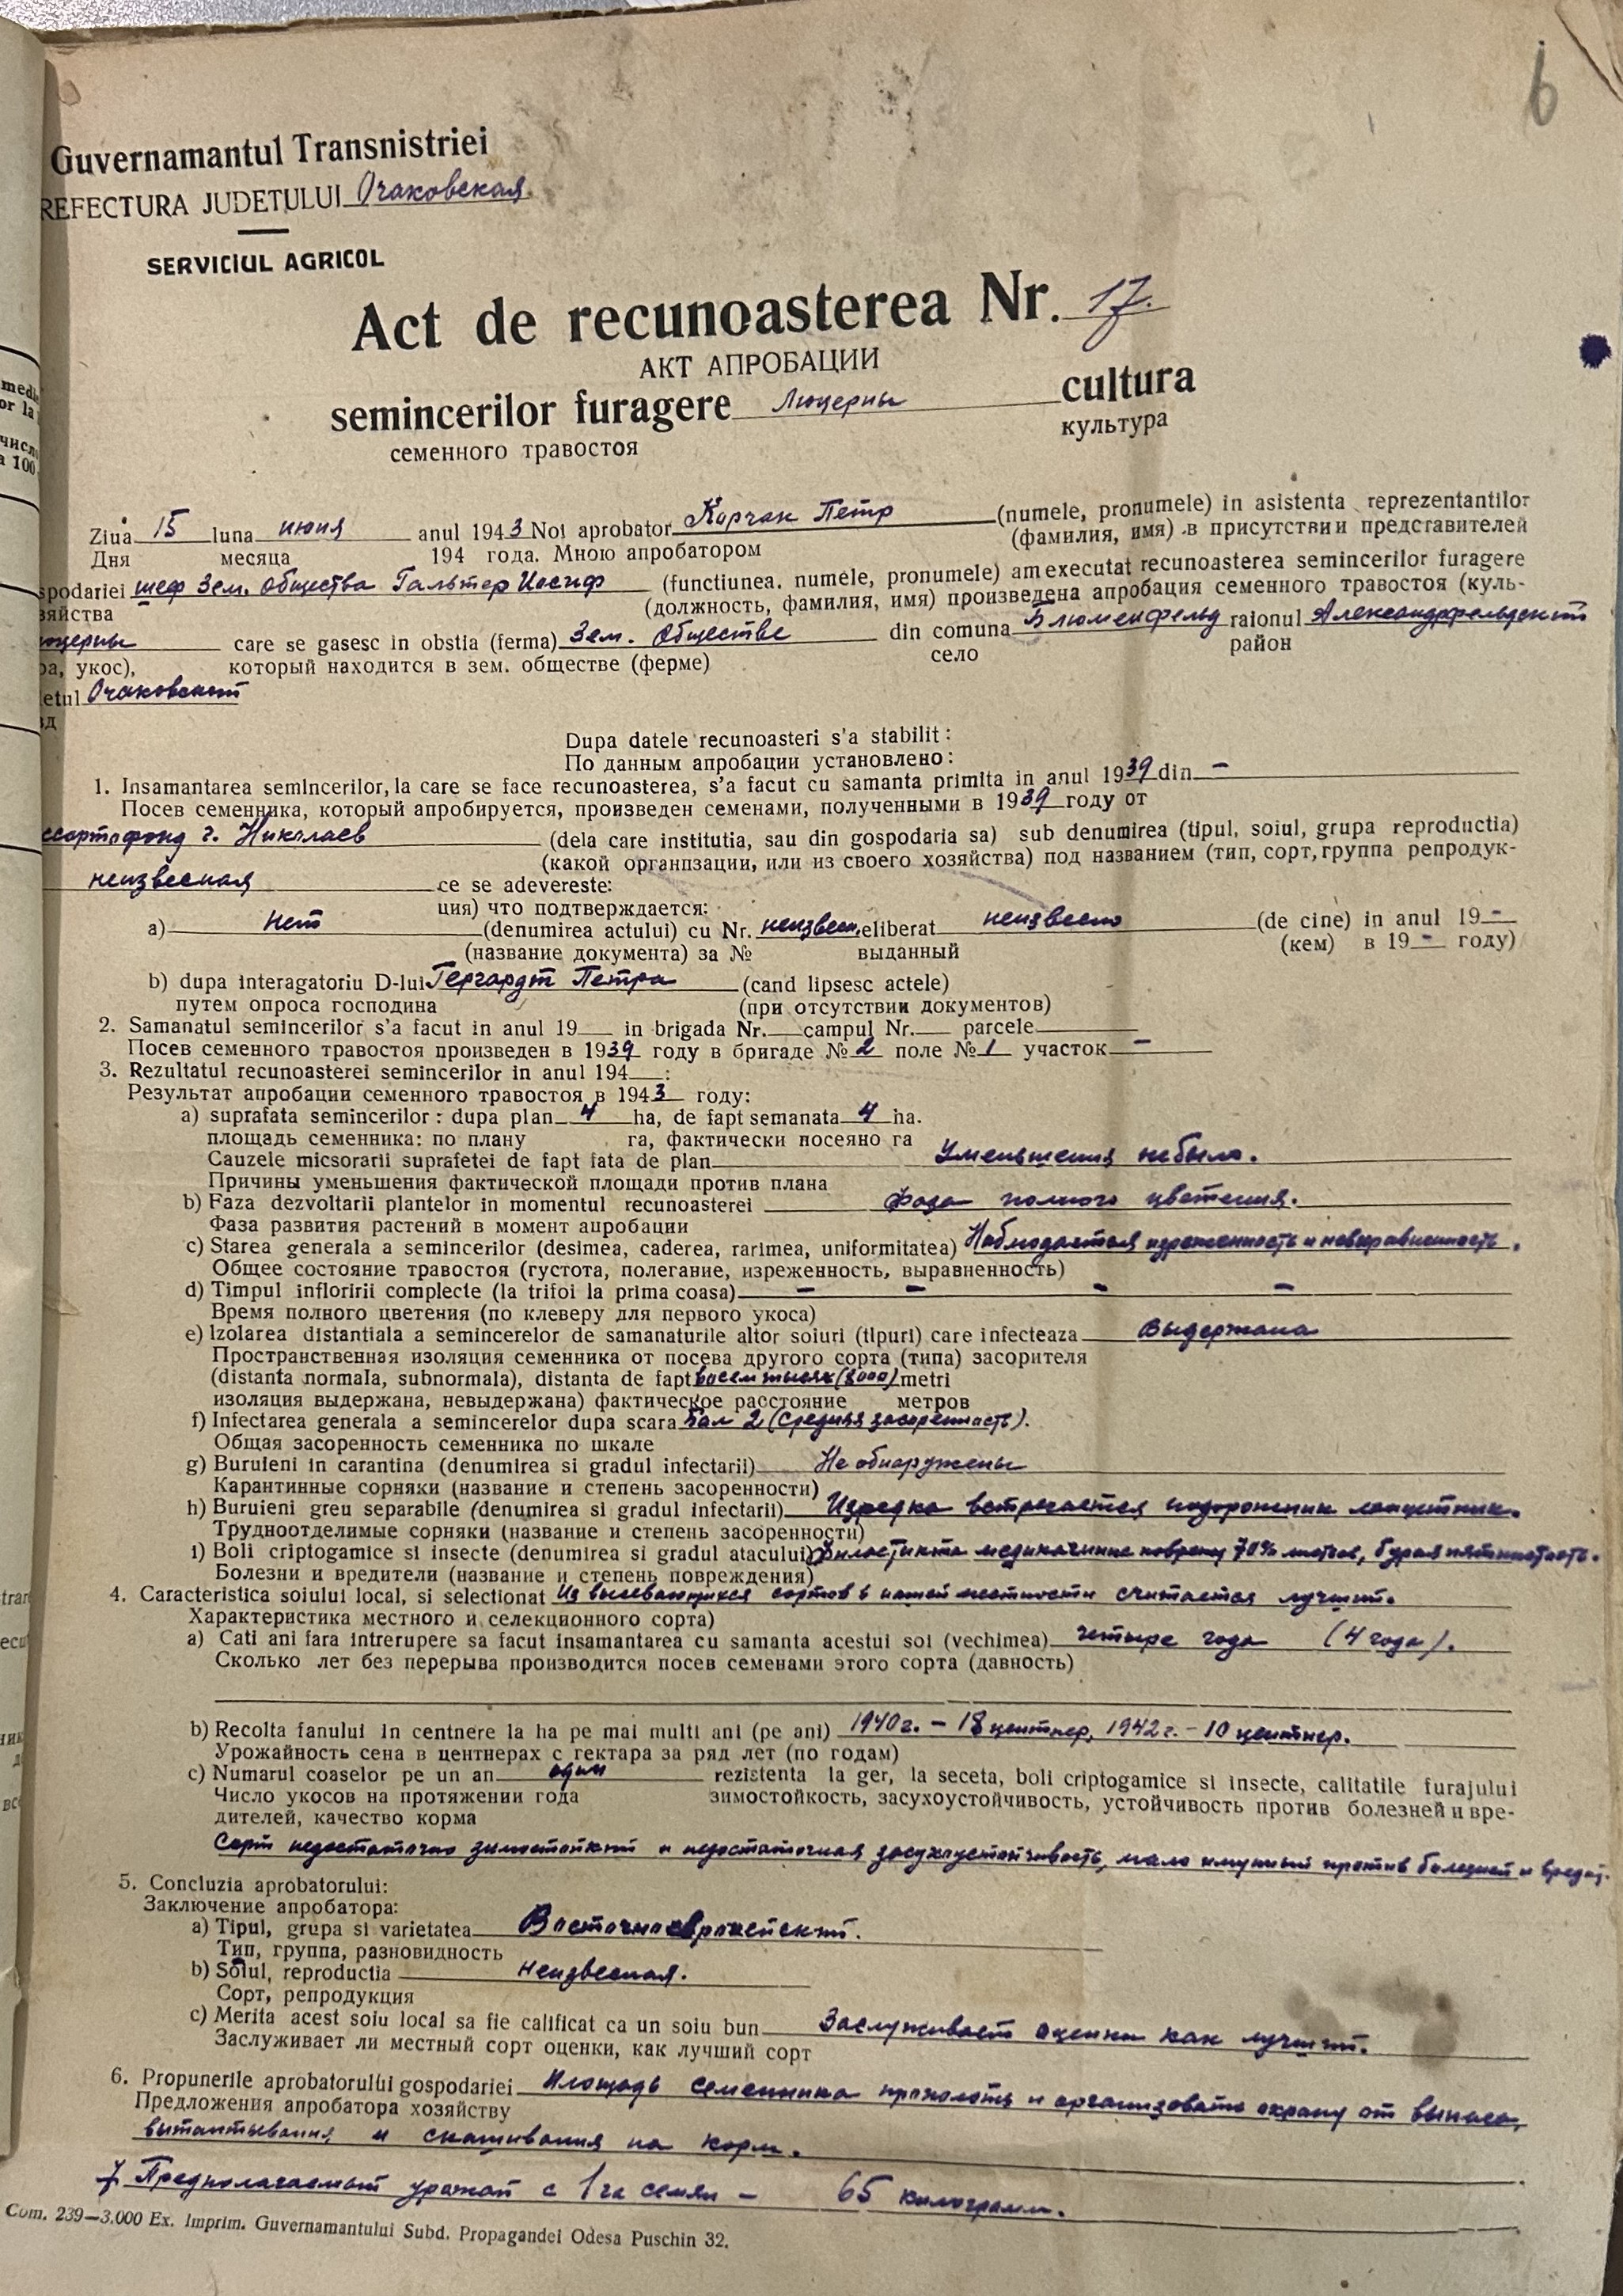 6
Guvernamantul Transnistriei
REFECTURA JUDETULUI Очаковская
SERVICIUL AGRICOL
Act de recunoasterea Nr. 17.
АКТ АПРОБАЦИИ
semincerilor furagere Люцерны cultura
семенного травостоя культура
Ziua 15 luna июня anul 1943 Noi aprobator Корчак Петр (numele, pronumele) in asistenta reprezentantilor
Дня месяца 194 года. Мною апробатором (фамилия, имя) в присутствии представителей
spodariei шеф Зем. Общества Гальтер Иосиф (functiunea. numele, pronumele) am executat recunoasterea semincerilor furagere
зяйства (должность, фамилия, имя) произведена апробация семенного травостоя (куль-
юцерны care se gasesc in obstia (ferma) Зем. Обществе din comuna Блюменфельд raionul Александрфельдский
ра, укос), который находится в зем. обществе (ферме) село район
etul Очаковский
зд
Dupa datele recunoasteri s'a stabilit:
По данным апробации установлено:
1. Insamantarea semincerilor, la care se face recunoasterea, s'a facut cu samanta primita in anul 1939 din –
Посев семенника, который апробируется, произведен семенами, полученными в 1939 году от
ссортофонд г. Николаев (dela care institutia, sau din gospodaria sa) sub denumirea (tipul, soiul, grupa reproductia)
(какой организации, или из своего хозяйства) под названием (тип, сорт, группа репродук-
неизвесная ce se adevereste:
ция) что подтверждается:
a) Нет (denumirea actului) cu Nr. неизвесн. eliberat неизвесно (de cine) in anul 19 -
(название документа) за № выданный (кем) в 19 - году)
b) dupa interagatoriu D-lui Гергардт Петра (cand lipsesc actele)
путем опроса господина (при отсутствии документов)
2. Samanatul semincerilor s'a facut in anul 19 in brigada Nr. campul Nr. parcele
Посев семенного травостоя произведен в 1939 году в бригаде № 2 поле № 1 участок –
3. Rezultatul recunoasterei semincerilor in anul 194 :
Результат апробации семенного травостоя в 1943 году:
a) suprafata semincerilor: dupa plan 4 ha, de fapt semanata 4 ha.
площадь семенника: по плану га, фактически посеяно га
Cauzele micsorarii suprafetei de fapt fata de plan Уменьшения небыло.
Причины уменьшения фактической площади против плана
b) Faza dezvoltarii plantelor in momentul recunoasterei Фаза полного цветения.
Фаза развития растений в момент апробации
c) Starea generala a semincerilor (desimea, caderea, rarimea, uniformitatea) Наблюдается изреженность и невыравненность.
Общее состояние травостоя (густота, полегание, изреженность, выравненность)
d) Timpul infloririi complecte (la trifoi la prima coasa) – – – –
Время полного цветения (по клеверу для первого укоса)
e) Izolarea distantiala a semincerelor de samanaturile altor soiuri (tipuri) care infecteaza Выдержана
Пространственная изоляция семенника от посева другого сорта (типа) засорителя
(distanta normala, subnormala), distanta de fapt восем тысяч (8000) metri
изоляция выдержана, невыдержана) фактическое расстояние метров
f) Infectarea generala a semincerelor dupa scara Бал 2 (средняя засоренность).
Общая засоренность семенника по шкале
g) Buruieni in carantina (denumirea si gradul infectarii) Не обнаружены
Карантинные сорняки (название и степень засоренности)
h) Buruieni greu separabile (denumirea si gradul infectarii) Изредка встречается подорожник ланцетник.
Трудноотделимые сорняки (название и степень засоренности)
i) Boli criptogamice si insecte (denumirea si gradul atacului) 70% листьев, бурая пятнистость.
Болезни и вредители (название и степень повреждения)
4. Caracteristica soiului local, si selectionat Из высевающихся сортов в нашей местности считается лучший.
Характеристика местного и селекционного сорта)
a) Cati ani fara intrerupere sa facut insamantarea cu samanta acestui soi (vechimea) четыре года (4 года).
Сколько лет без перерыва производится посев семенами этого сорта (давность)
b) Recolta fanului in centnere la ha pe mai multi ani (pe ani) 1940 г. – 18 центнер, 1942 г. – 10 центнер.
Урожайность сена в центнерах с гектара за ряд лет (по годам)
c) Numarul coaselor pe un an один rezistenta la ger, la seceta, boli criptogamice si insecte, calitatile furajului
Число укосов на протяжении года зимостойкость, засухоустойчивость, устойчивость против болезней и вре-
дителей, качество корма
Сорт недостаточно зимостойкий и недостаточная засухаустойчивость, мало имунный против болезней и вредит.
5. Concluzia aprobatorului:
Заключение апробатора:
a) Tipul, grupa si varietatea Восточноевропейский.
Тип, группа, разновидность
b) Soiul, reproductia Неизвесная.
Сорт, репродукция
c) Merita acest soiu local sa fie calificat ca un soiu bun Заслуживает оценки как лучший.
Заслуживает ли местный сорт оценки, как лучший сорт
6. Propunerile aprobatorului gospodariei Площадь семенника прополоть и организовать охрану от выпаса,
Предложения апробатора хозяйству
вытаптывания и скашивания на корм.
7. Предполагаемый урожай с 1 га семян – 65 килограмм.
Com. 239—3.000 Ex. Imprim. Guvernamantului Subd. Propagandei Odesa Puschin 32.